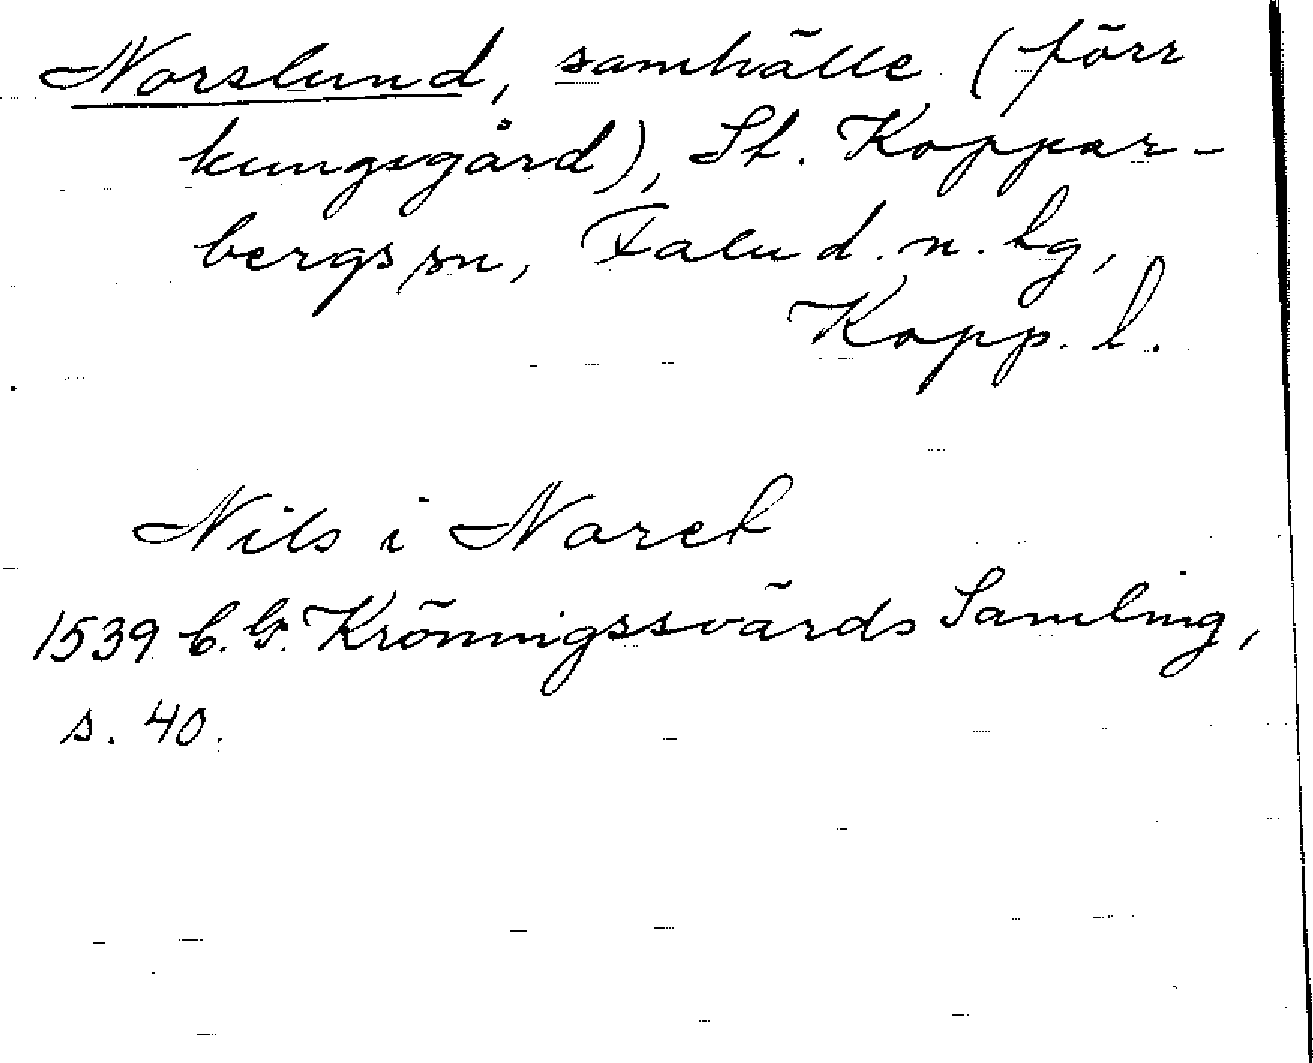 Norslund, samhälle (förr
kungsgård), St. Koppar-
bergs sn, Falu d. n. hg,
Kopp. l.
Nils i Norel
1539 C. G. Kröningssvärds Samling,
s. 40.